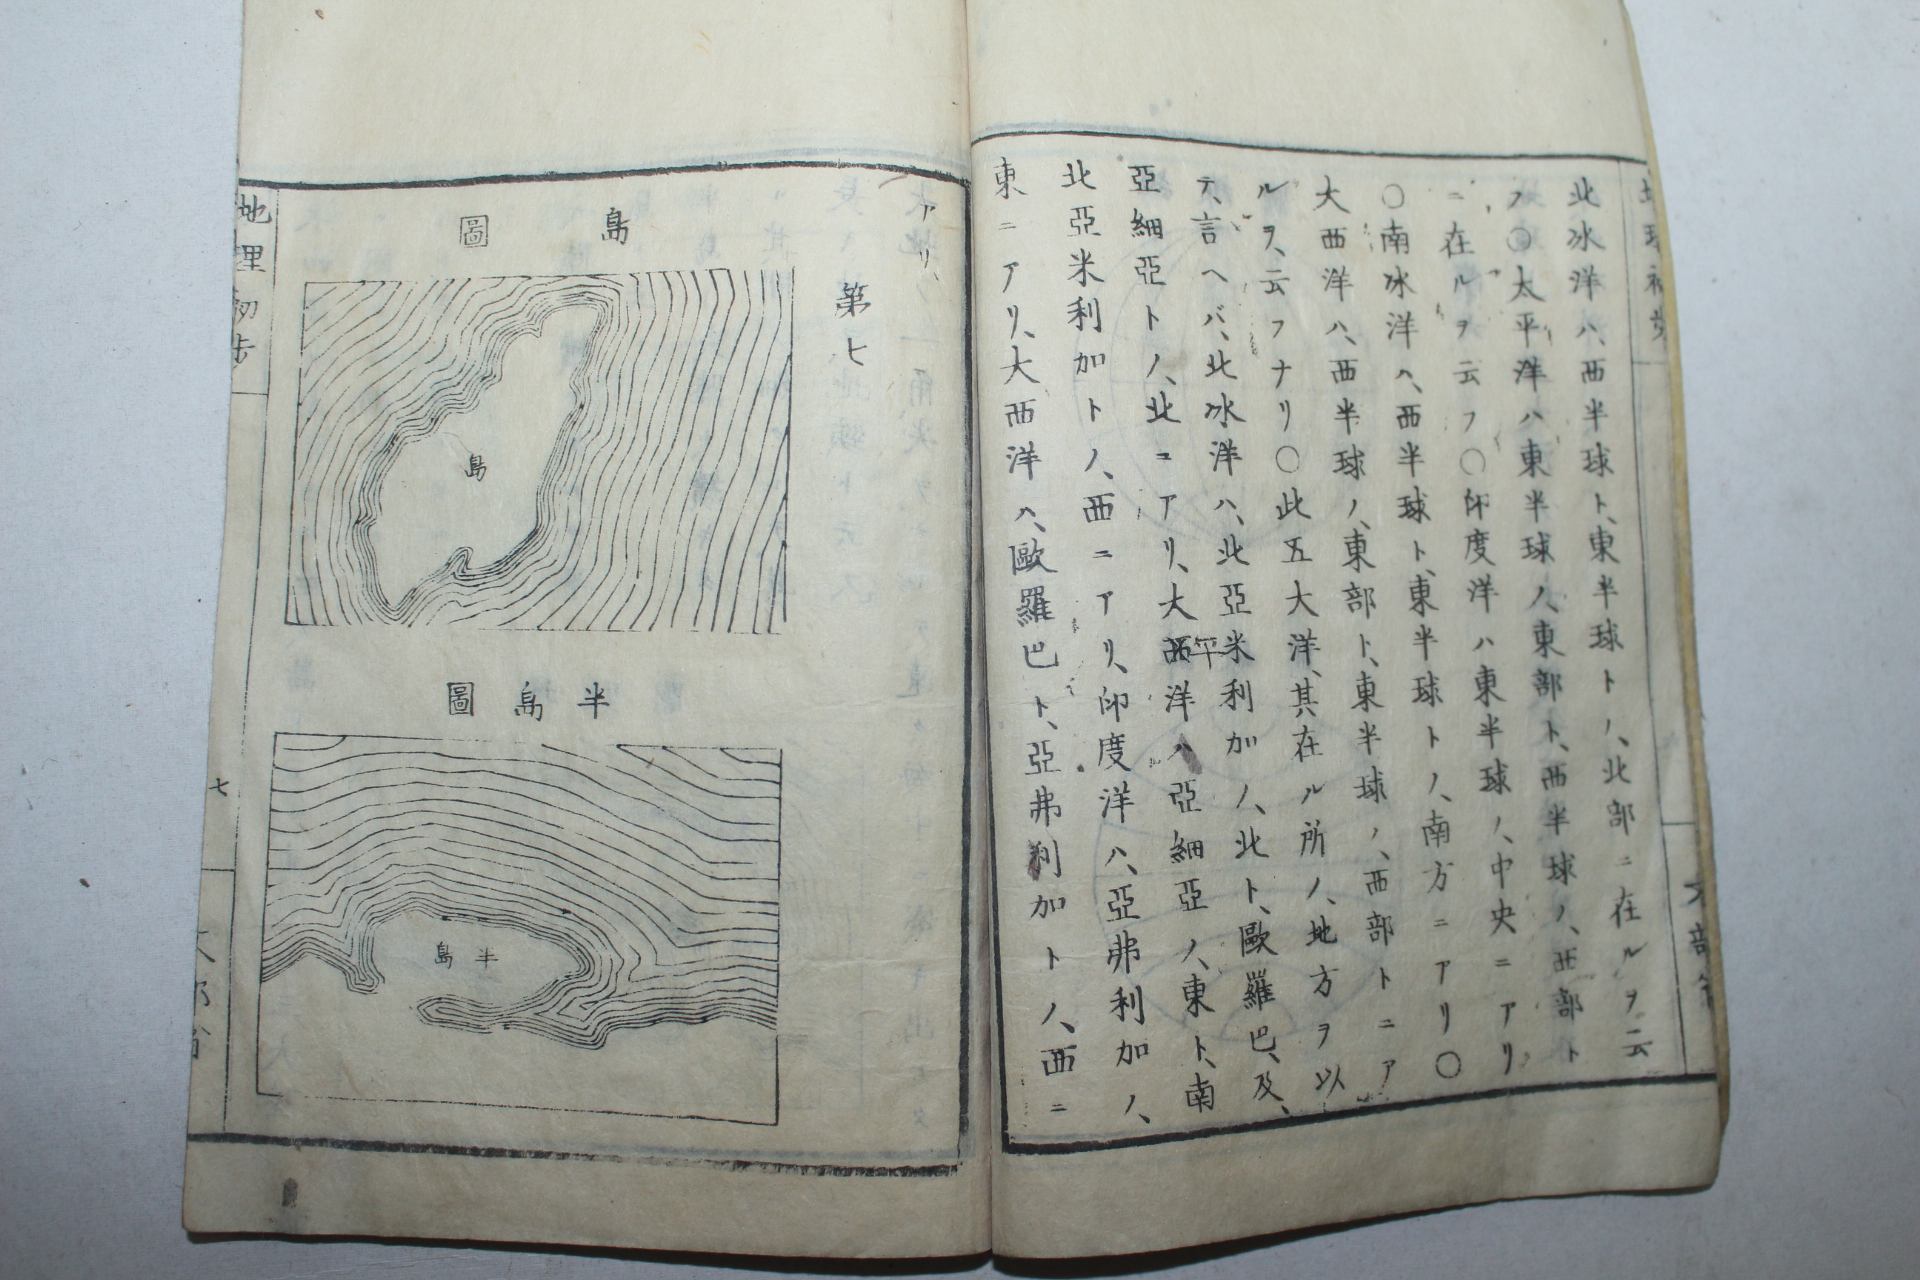 北冰洋ハ、西半球ト、東半球トノ、北部ニ在ルヲ云
フ〇太平洋ハ東半球ノ、東部ト、西半球ノ、西部ト
ニ在ルヲ云フ〇印度洋ハ東半球ノ、中央ニアリ
〇南冰洋ハ、西半球ト、東半球トノ、南方ニアリ〇
大西洋ハ、西半球ノ、東部ト、東半球ノ、西部トニア
ルヲ、云フナリ〇此五大洋、其在ル所ノ、地方ヲ以
テ、言ヘバ、北冰洋ハ、北亞米利加ノ、北ト、歐羅巴、及、
亞細亞トノ、北ニアリ、大平洋ハ亞細亞ノ、東ト、南
北亞米利加トノ、西ニアリ、印度洋ハ、亞弗利加ノ、
東ニアリ、大西洋ハ、歐羅巴ト、亞弗利加トノ、西ニ
アリ、
第七
島圖
島
半島圖
半島
地理初步
七